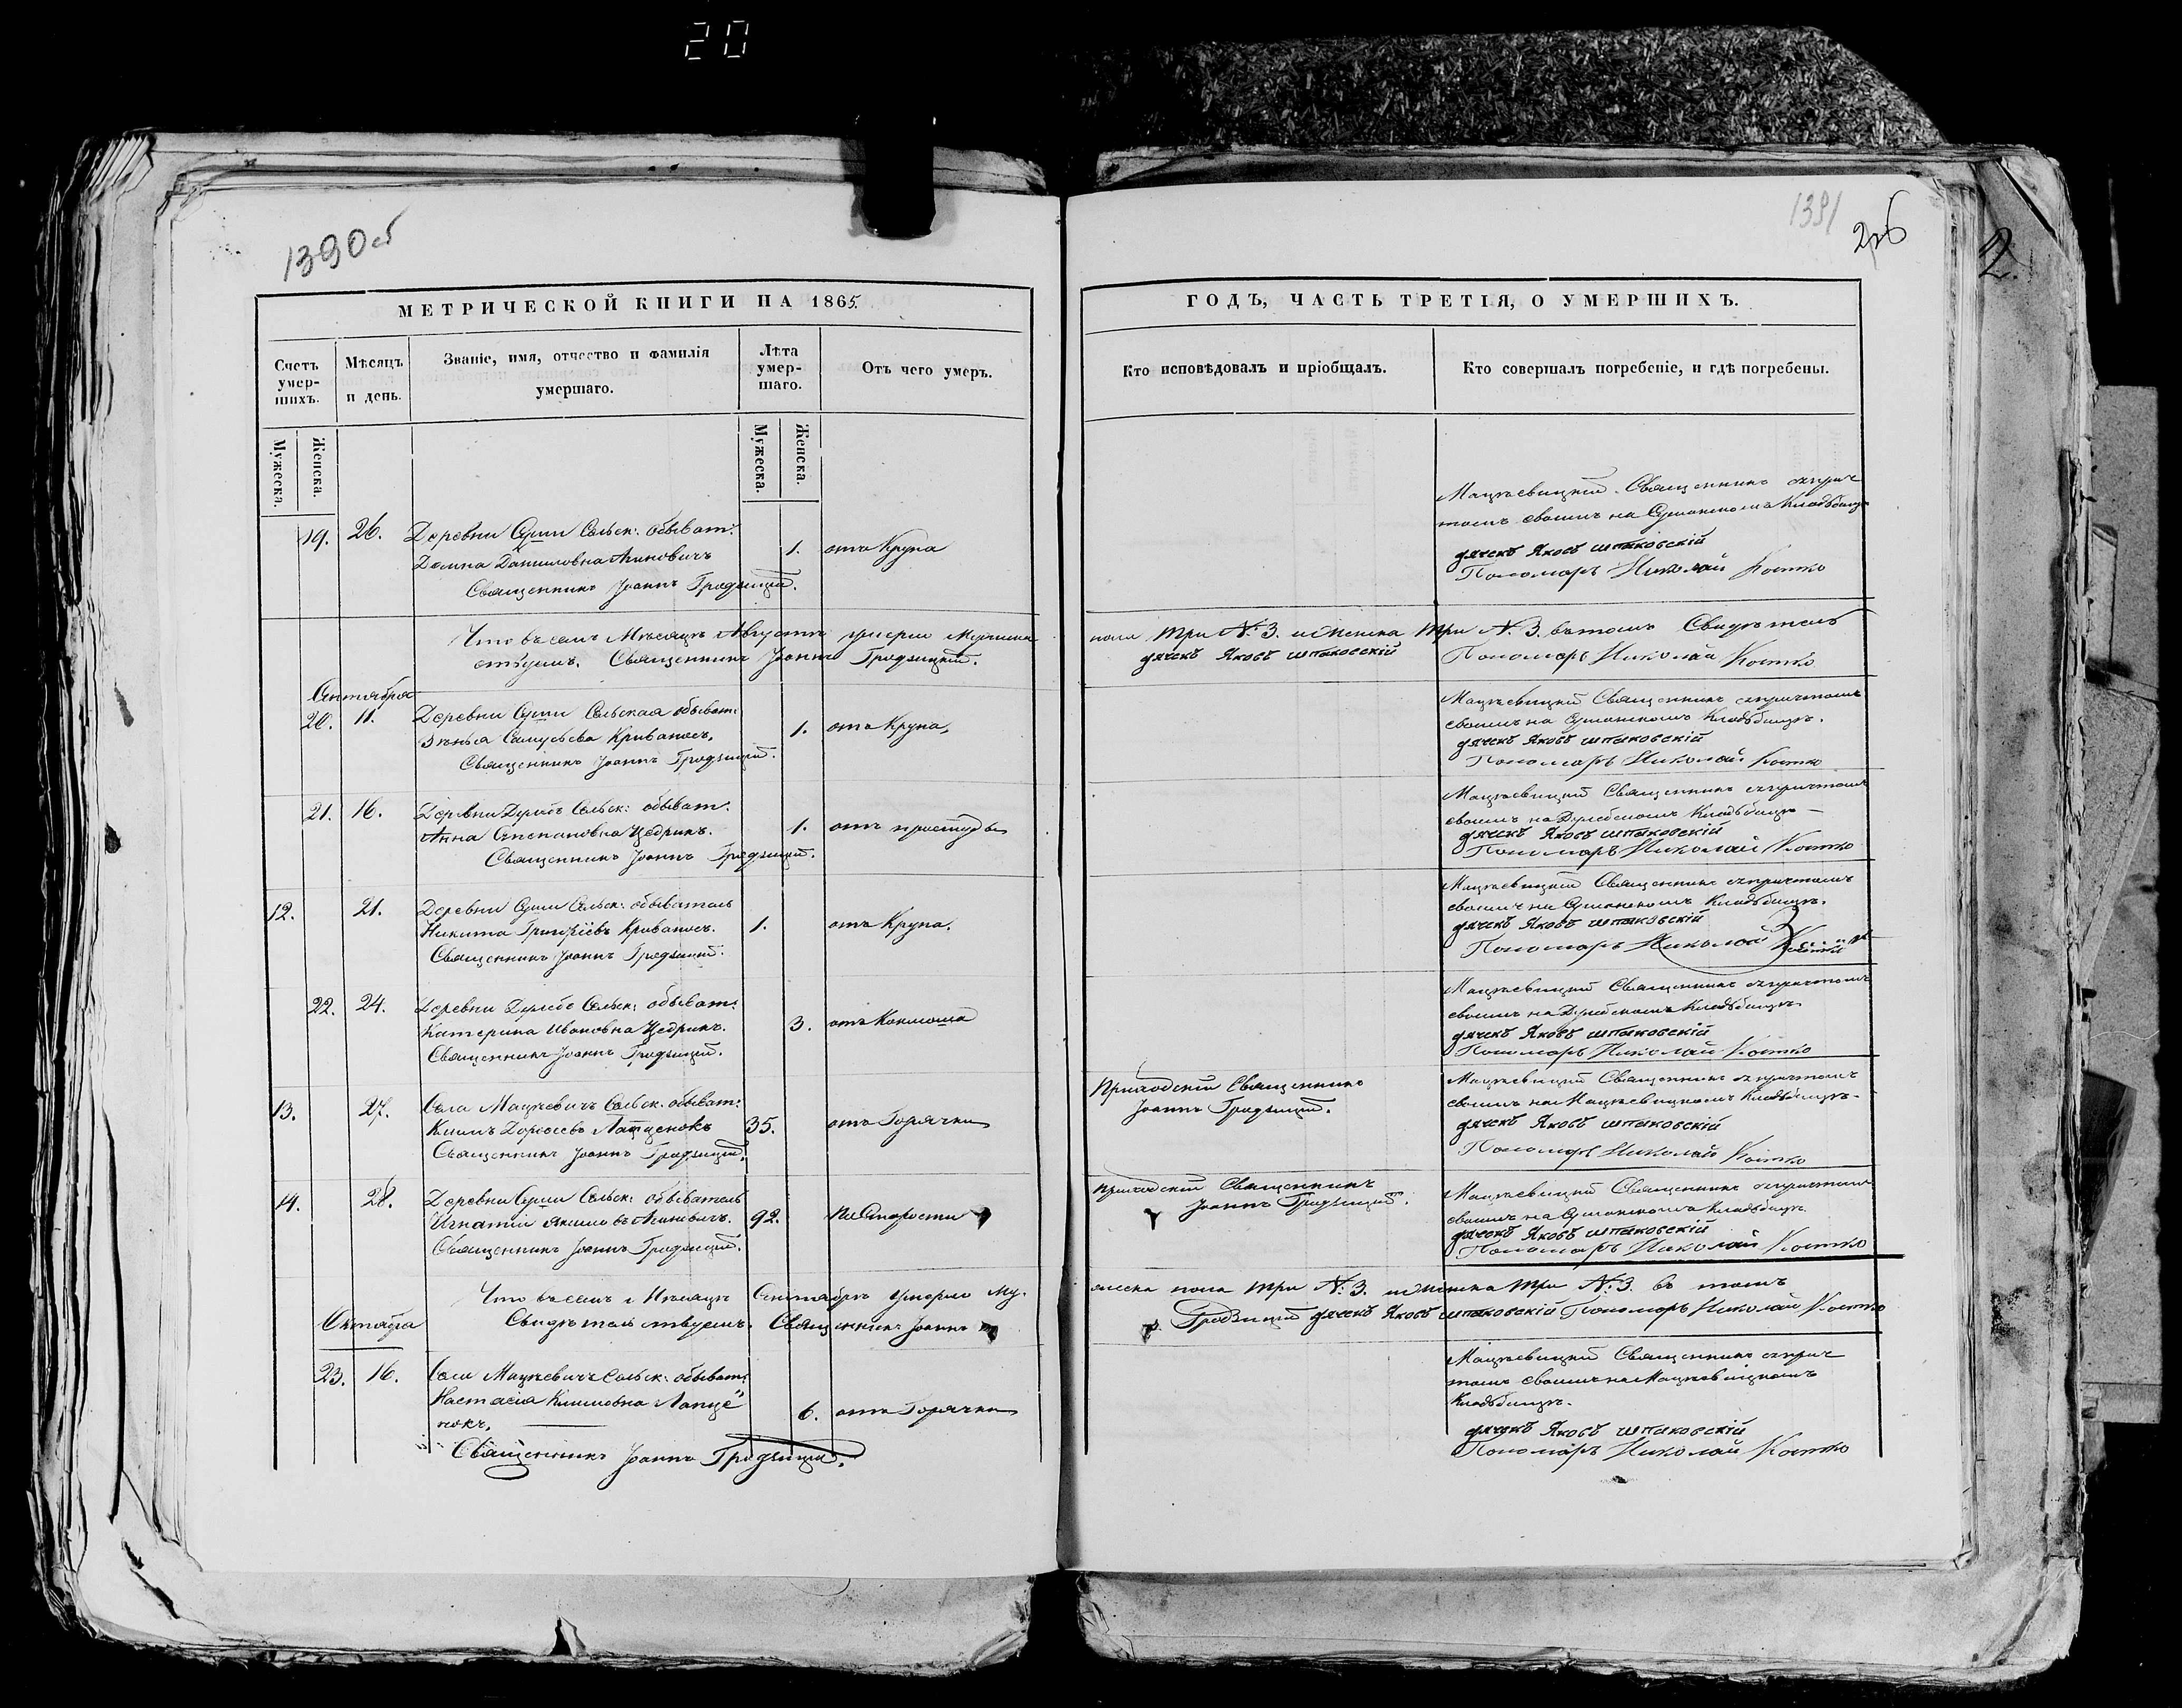 20
1390об
1391
226
2.
МЕТРИЧЕСКОЙ КНИГИ НА 1865.
ГОДЪ, ЧАСТЬ ТРЕТІЯ, О УМЕРШИХЪ.
Счетъ умер-
шихъ.
Мѣсяцъ
и день.
Званіе, имя, отчество и фамилія
умершаго.
Лѣта
умер-
шаго.
Отъ чего умеръ.
Кто исповѣдовалъ и пріобщалъ.
Кто совершалъ погребеніе, и гдѣ погребены.
Мужеска.
Женска.
Мужеска.
Женска.
19. 26. Деревни Суши Сельск: обыват:
Домна Даниловна
Священникъ Іоаннъ Гродзицкій.
1. отъ Крупа
Мацкевицкій Священникъ съ прич
томъ своимъ на Сушанскомъ Кладбищѣ
дячекъ Яковъ шпаковскій
Пономарь Николай Костко
Что въ семъ Мѣсяцѣ Августѣ умерло Мужеска
пола три №. 3. и Женска три №. 3. въ томъ Свидѣтель
ствуемъ. Священникъ Іоаннъ Гродзицкій.
дячекъ Яковъ шпаковскій Пономарь Николай Костко
Сентября
20. 11. Деревни Суши Сельская обыват:
Криваносъ.
Священникъ Іоаннъ Гродзицкій.
1. отъ Крупа,
Мацкевицкій Священникъ съ причтомъ
своимъ на Сушанскомъ Кладбищѣ.
дячекъ Яковъ шпаковскій
Пономарь Николай Костко
21. 16. Деревни Дулебъ Сельск: обыват:
Анна Степановна Цедрикъ.
Священникъ Іоаннъ Гродзицкій.
1. отъ простуды
Мацкевицкій Священникъ съ причтомъ
своимъ на Дулебскомъ Кладбищѣ
дячекъ Яковъ шпаковскій
Пономарь Николай Костко
12. 21. Деревни Суши Сельск: обыватель
Никита Григорьевъ Криваносъ.
Священникъ Іоаннъ Гродзицкій.
1. отъ Крупа.
Мацкевицкій Священникъ съ причтомъ
своимъ на Сушанскомъ Кладбищѣ.
дячекъ Яковъ шпаковскій
Пономарь Николай Костко
22. 24. Деревни Дулебо Сельск: обыват:
Катерина Ивановна Цедрикъ.
Священникъ Іоаннъ Гродзицкій.
3. отъ Коклюша
Мацкевицкій Священникъ съ причтомъ
своимъ на Дулебскомъ Кладбищѣ
дячекъ Яковъ шпаковскій
Пономарь Николай Костко
13. 27. Села Мацкевичъ Сельск. обыват:
Климъ Лапценокъ
Священникъ Іоаннъ Гродзицкій.
35. отъ Горячки
Приходскій Священникъ
Іоаннъ Гродзицкій.
Мацкевицкій Священникъ съ причтомъ
своимъ на Мацкевицкомъ Кладбищѣ.
дячекъ Яковъ шпаковскій
Пономарь Николай Костко
14. 28. Деревни Суши Сельск: обыватель
Игнатій Якимовъ
Священникъ Іоаннъ Гродзицкій.
92. По Старости
Приходскій Священникъ
Іоаннъ Гродзицкій.
Мацкевицкій Священникъ съ причтомъ
своимъ на Сушанскомъ Кладбищѣ
дячекъ Яковъ шпаковскій
Пономарь Николай Костко
Что въ семъ Мѣсяцѣ Сентябрѣ умерло Му-
жеска пола три №. 3. и Женска три №. 3. въ томъ
Свидѣтельствуемъ. Священникъ Іоаннъ
Гродзицкій дячекъ Яковъ шпаковскій Пономарь Николай Костко
Октября
23. 16. Села Мацкевичъ Сельск: обыват:
Настасія Климовна Лапце
нокъ.
Священникъ Іоаннъ Гродзицкій.
6. отъ Горячки
Мацкевицкій Священникъ съ прич
томъ своимъ на Мацкевицкомъ
Кладбищѣ.
дячекъ Яковъ шпаковскій
Пономарь Николай Костко